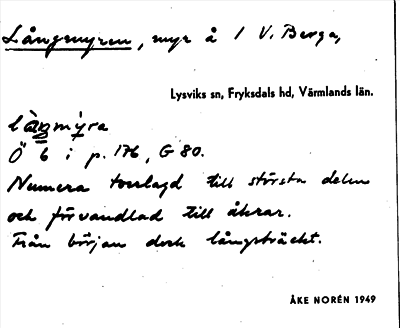 Långmyren, myr å 1 V. Berga,
Lysviks sn, Fryksdals hd, Värmlands län.
làŋmỳra
Ö 6 i p. 176, G 80.
Numera torrlagd till största delen
och förvandlad till åkrar.
Från början dock långsträckt.
ÅKE NORÉN 1949